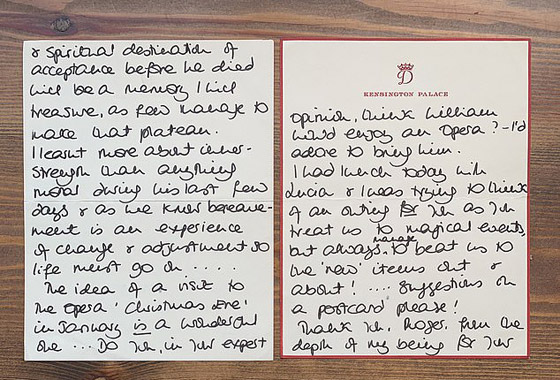 & spiritual destination of
acceptance before he died
will be a memory I will
treasure, as few manage to
make that plateau.
I learnt more about inner-
strength than anything
moral during his last few
days & as we know bereave-
ment is an experience
of change & adjustment so
life must go on . . . . .
The idea of a visit to
the opera 'Christmas Eve'
in January is a wonderful
one ... Do you, in your expert
D
KENSINGTON PALACE
opinion, think William
would enjoy an opera? - I'd
adore to bring him.
I had lunch today with
Lucia & I was trying to think
of an outing for you as you
treat us to magical events,
but always manage to beat us to
the 'new' items out &
about! .... suggestions on
a postcard please!
Thank you, Roger, from the
depth of my being for your